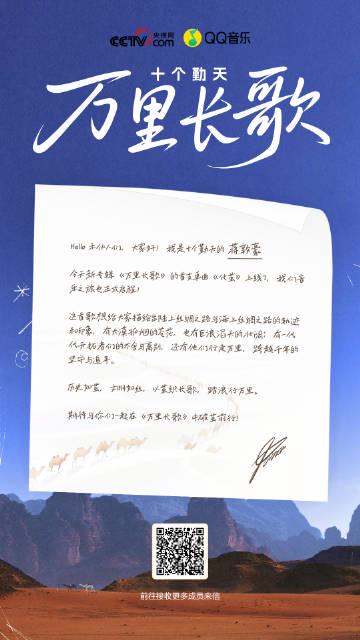 央视网
CCTV.com
QQ音乐
十个勤天
万里长歌
Hello 禾伙人们，大家好！我是十个勤天的 蒋敦豪
今天新专辑《万里长歌》的首支单曲《化茧》上线了，我们音
乐之旅也正式启程！
这首歌想给大家描绘出陆上丝绸之路与海上丝绸之路的轨迹
和印象，有大漠孤烟的苍茫，也有巨浪滔天的壮阔；有一代
代开拓者们的不舍与离别，还有他们行走万里、跨越千年的
坚守与追寻。
历史如茧，如丝，以茧织长歌，踏浪行万里。
期待与你们一起在《万里长歌》中破茧前行！
前往接收更多成员来信